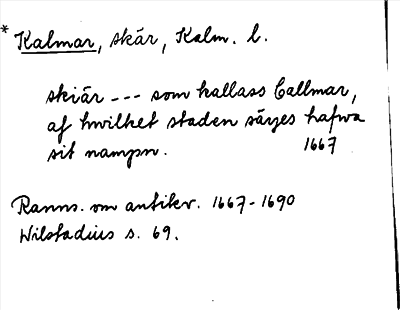 * Kalmar, skär, Kalm. l.
skiär --- som kallass Callmar,
af hwilket staden säyes hafwa
sit nampn. 1667
Ranns. om antikv. 1667-1690
Wilstadius s. 69.